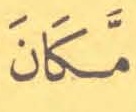 مَّكَانَ